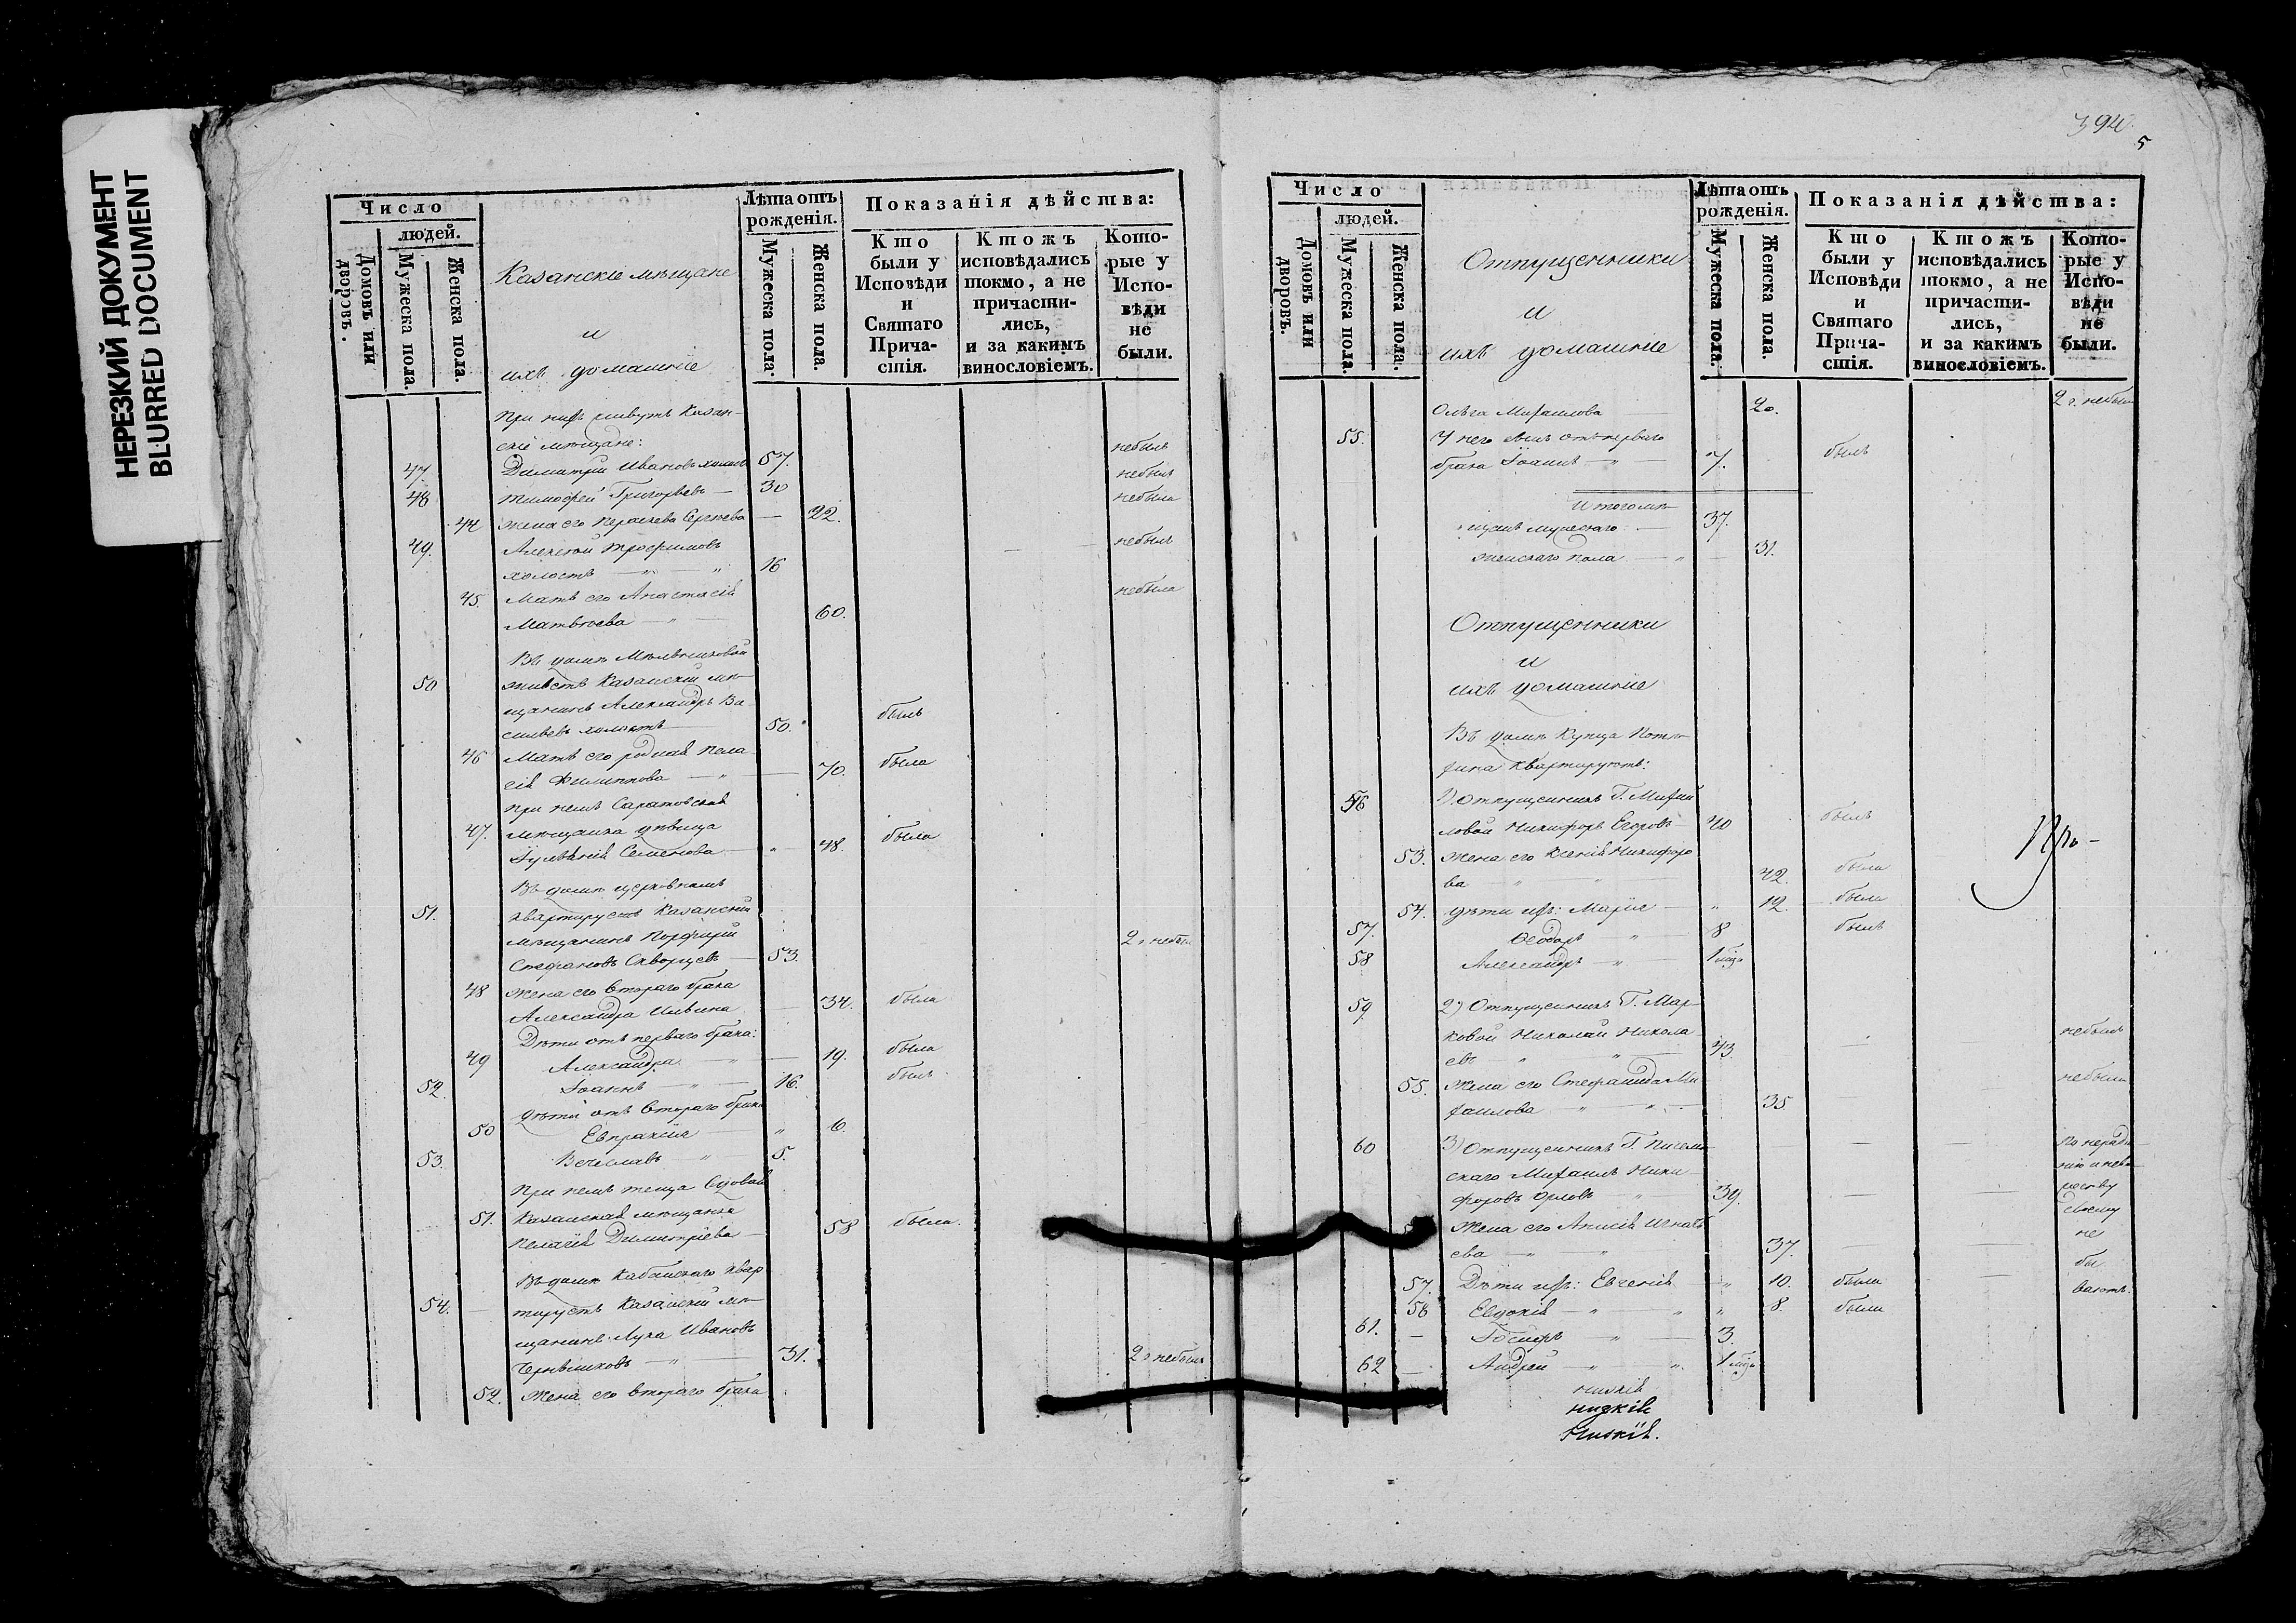 НЕРЕЗКИЙ ДОКУМЕНТ
BLURRED DOCUMENT
Число
людей.
Домовъ или дворовъ.
Мужеска пола.
Женска пола.
Казанскіе мѣщане
и
ихъ домашніе
Лѣта отъ рожденія.
Мужеска пола.
Женска пола.
Показанія дѣйства:
Кто были у Исповѣди и Святаго Причастія.
Ктожъ исповѣдались токмо, а не причастились, и за какимъ винословіемъ.
Которые у Исповѣди не были.
При нихъ живутъ Казан-
скіе мѣщане:
47. Димитрій Ивановъ холостъ 57. небылъ
48 Тимофей Григорьевъ — 30 небылъ
44 Жена его Параскева Сергѣева — 22. небыла
49. Алексѣй Трофимовъ небылъ
холостъ — " — " 16
45. Мать его Анастасія небыла
Матвѣева — " — 60.
Въ домѣ Мѣльниковой
50 живетъ Казанскій мѣ-
щанинъ Александръ Ва-
сильевъ холостъ 50. былъ
46 Мать его родная Пела-
гія Филиппова — " — 70. была
При немъ Саратовская
47. мѣщанка дѣвица
Іуліанія Семенова — " 48. была
Въ домѣ церковномъ
51. квартируетъ Казанскій
мѣщанинъ Порфирій 2 г. небылъ
Стефановъ Скворцевъ — 53.
48 Жена его втораго брака
Александра Ильина — 34. была
Дѣти отъ перваго брака:
49 Александра — " — 19. была
52. Іоаннъ — " — 16. былъ
Дѣти отъ втораго брака
50 Евпраксія — " 6.
53. Вечеславъ — " 5.
При немъ теща вдовая
51. Казанская мѣщанка
Пелагія Димитріева — 58 была.
Въ домѣ Кабанскаго квар-
54. — тируетъ Казанскій мѣ-
щанинъ Лука Ивановъ
— " — 31. 2 г. небылъ
52. Жена его втораго брака
394.
5
Число
людей.
Домовъ или дворовъ.
Мужеска пола.
Женска пола.
Отпущенники
и
ихъ домашніе
Лѣта отъ рожденія.
Мужеска пола.
Женска пола.
Показанія дѣйства:
Кто были у Исповѣди и Святаго Причастія.
Ктожъ исповѣдались токмо, а не причастились, и за какимъ винословіемъ.
Которые у Исповѣди не были.
Ольга Михаилова — 20. 2 г. небыла
55. У него сынъ отъ перваго
брака Іоаннъ — " — 7. былъ
Итого мѣ-
щанъ мужескаго — 37.
женскаго пола — " — 31.
Отпущенники
и
ихъ домашніе
Въ домѣ Купца Котѣ-
хина квартируютъ:
56 1) Отпущенникъ Г. Михай-
ловой Никифоръ Егоровъ — 40 былъ
53. Жена его Ксенія Никифоро-
ва — " — " — 42. была
54. Дѣти ихъ: Марія — " 12. была
57. Ѳеодоръ — " — 8 былъ
58 Александръ — " — 1 мѣся
Про-
59. 2) Отпущенникъ Г. Мар-
ковой Николай Никола-
евъ — " — " — 43. небылъ
55. Жена его Стефанида Ми-
хаилова — " — " — 35 небыла
60 3) Отпущенникъ Г. Писем-
скаго Михаилъ Ники-
форовъ Орловъ — " 39.
Жена его Анисія Игнать-
ева — " — " 37.
По неради-
нію и нева-
своему
не
бы-
ваютъ.
57. Дѣти ихъ: Евгенія — " 10. была
58 Евдокія — " — " 8. была
61. — Іосифъ — " — 3.
62 — Андрей — " — " 1 мѣся
низкія
нидкія
Низкія.